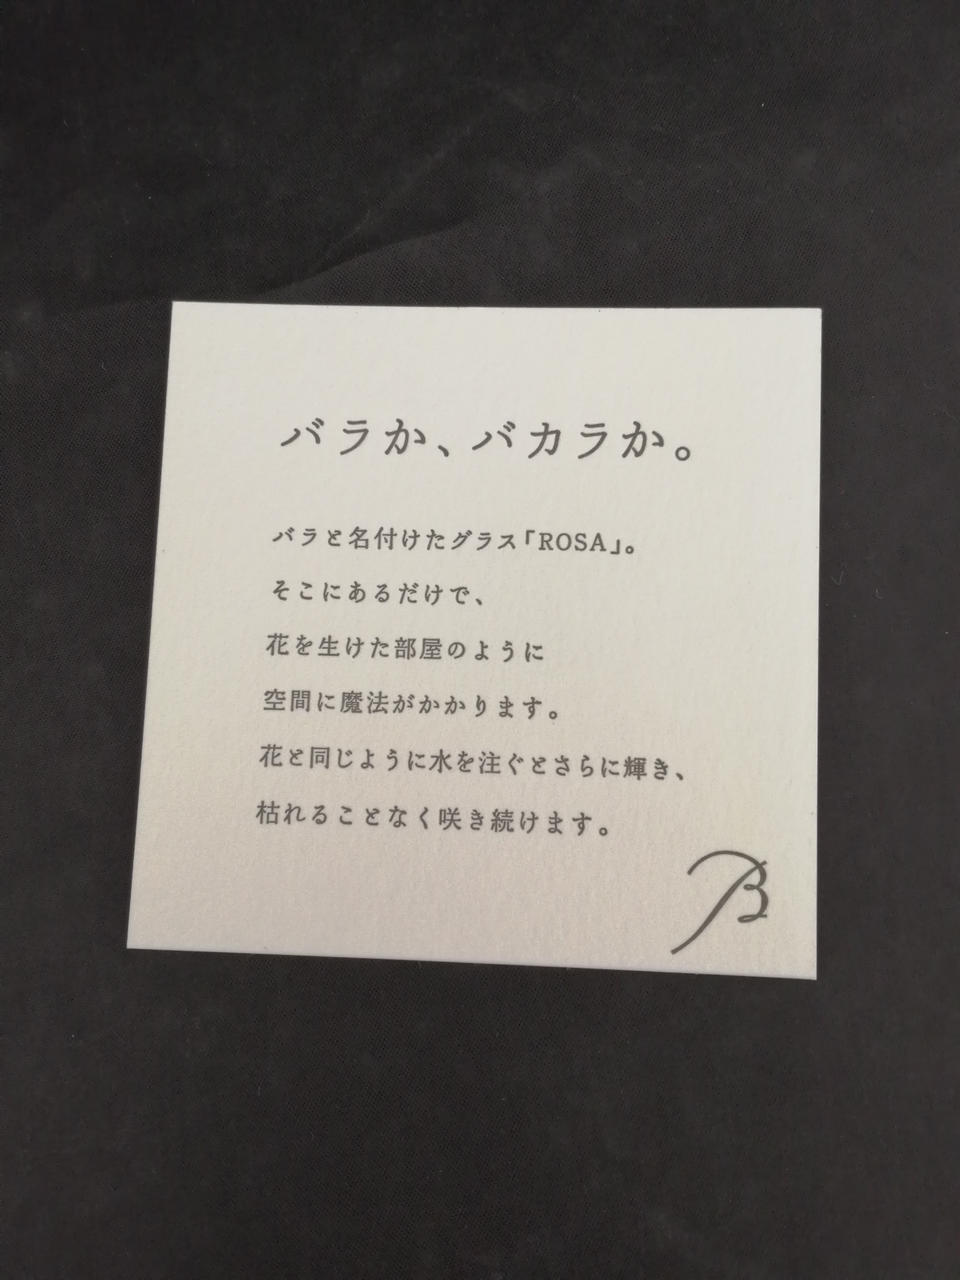 バラか、バカラか。
バラと名付けたグラス「ROSA」。
そこにあるだけで、
花を生けた部屋のように
空間に魔法がかかります。
花と同じように水を注ぐとさらに輝き、
枯れることなく咲き続けます。
B